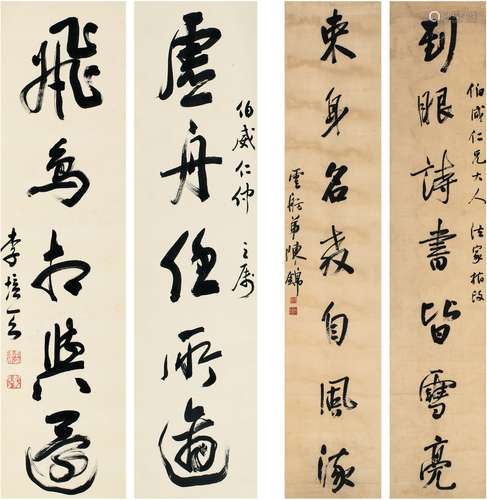 到眼詩書皆雪亮
伯威仁兄大人 法家指政
束身名教自風流
雲舫弟陳錦
虛舟任所適
伯威仁仲 之屬
飛鳥相與還
李培天